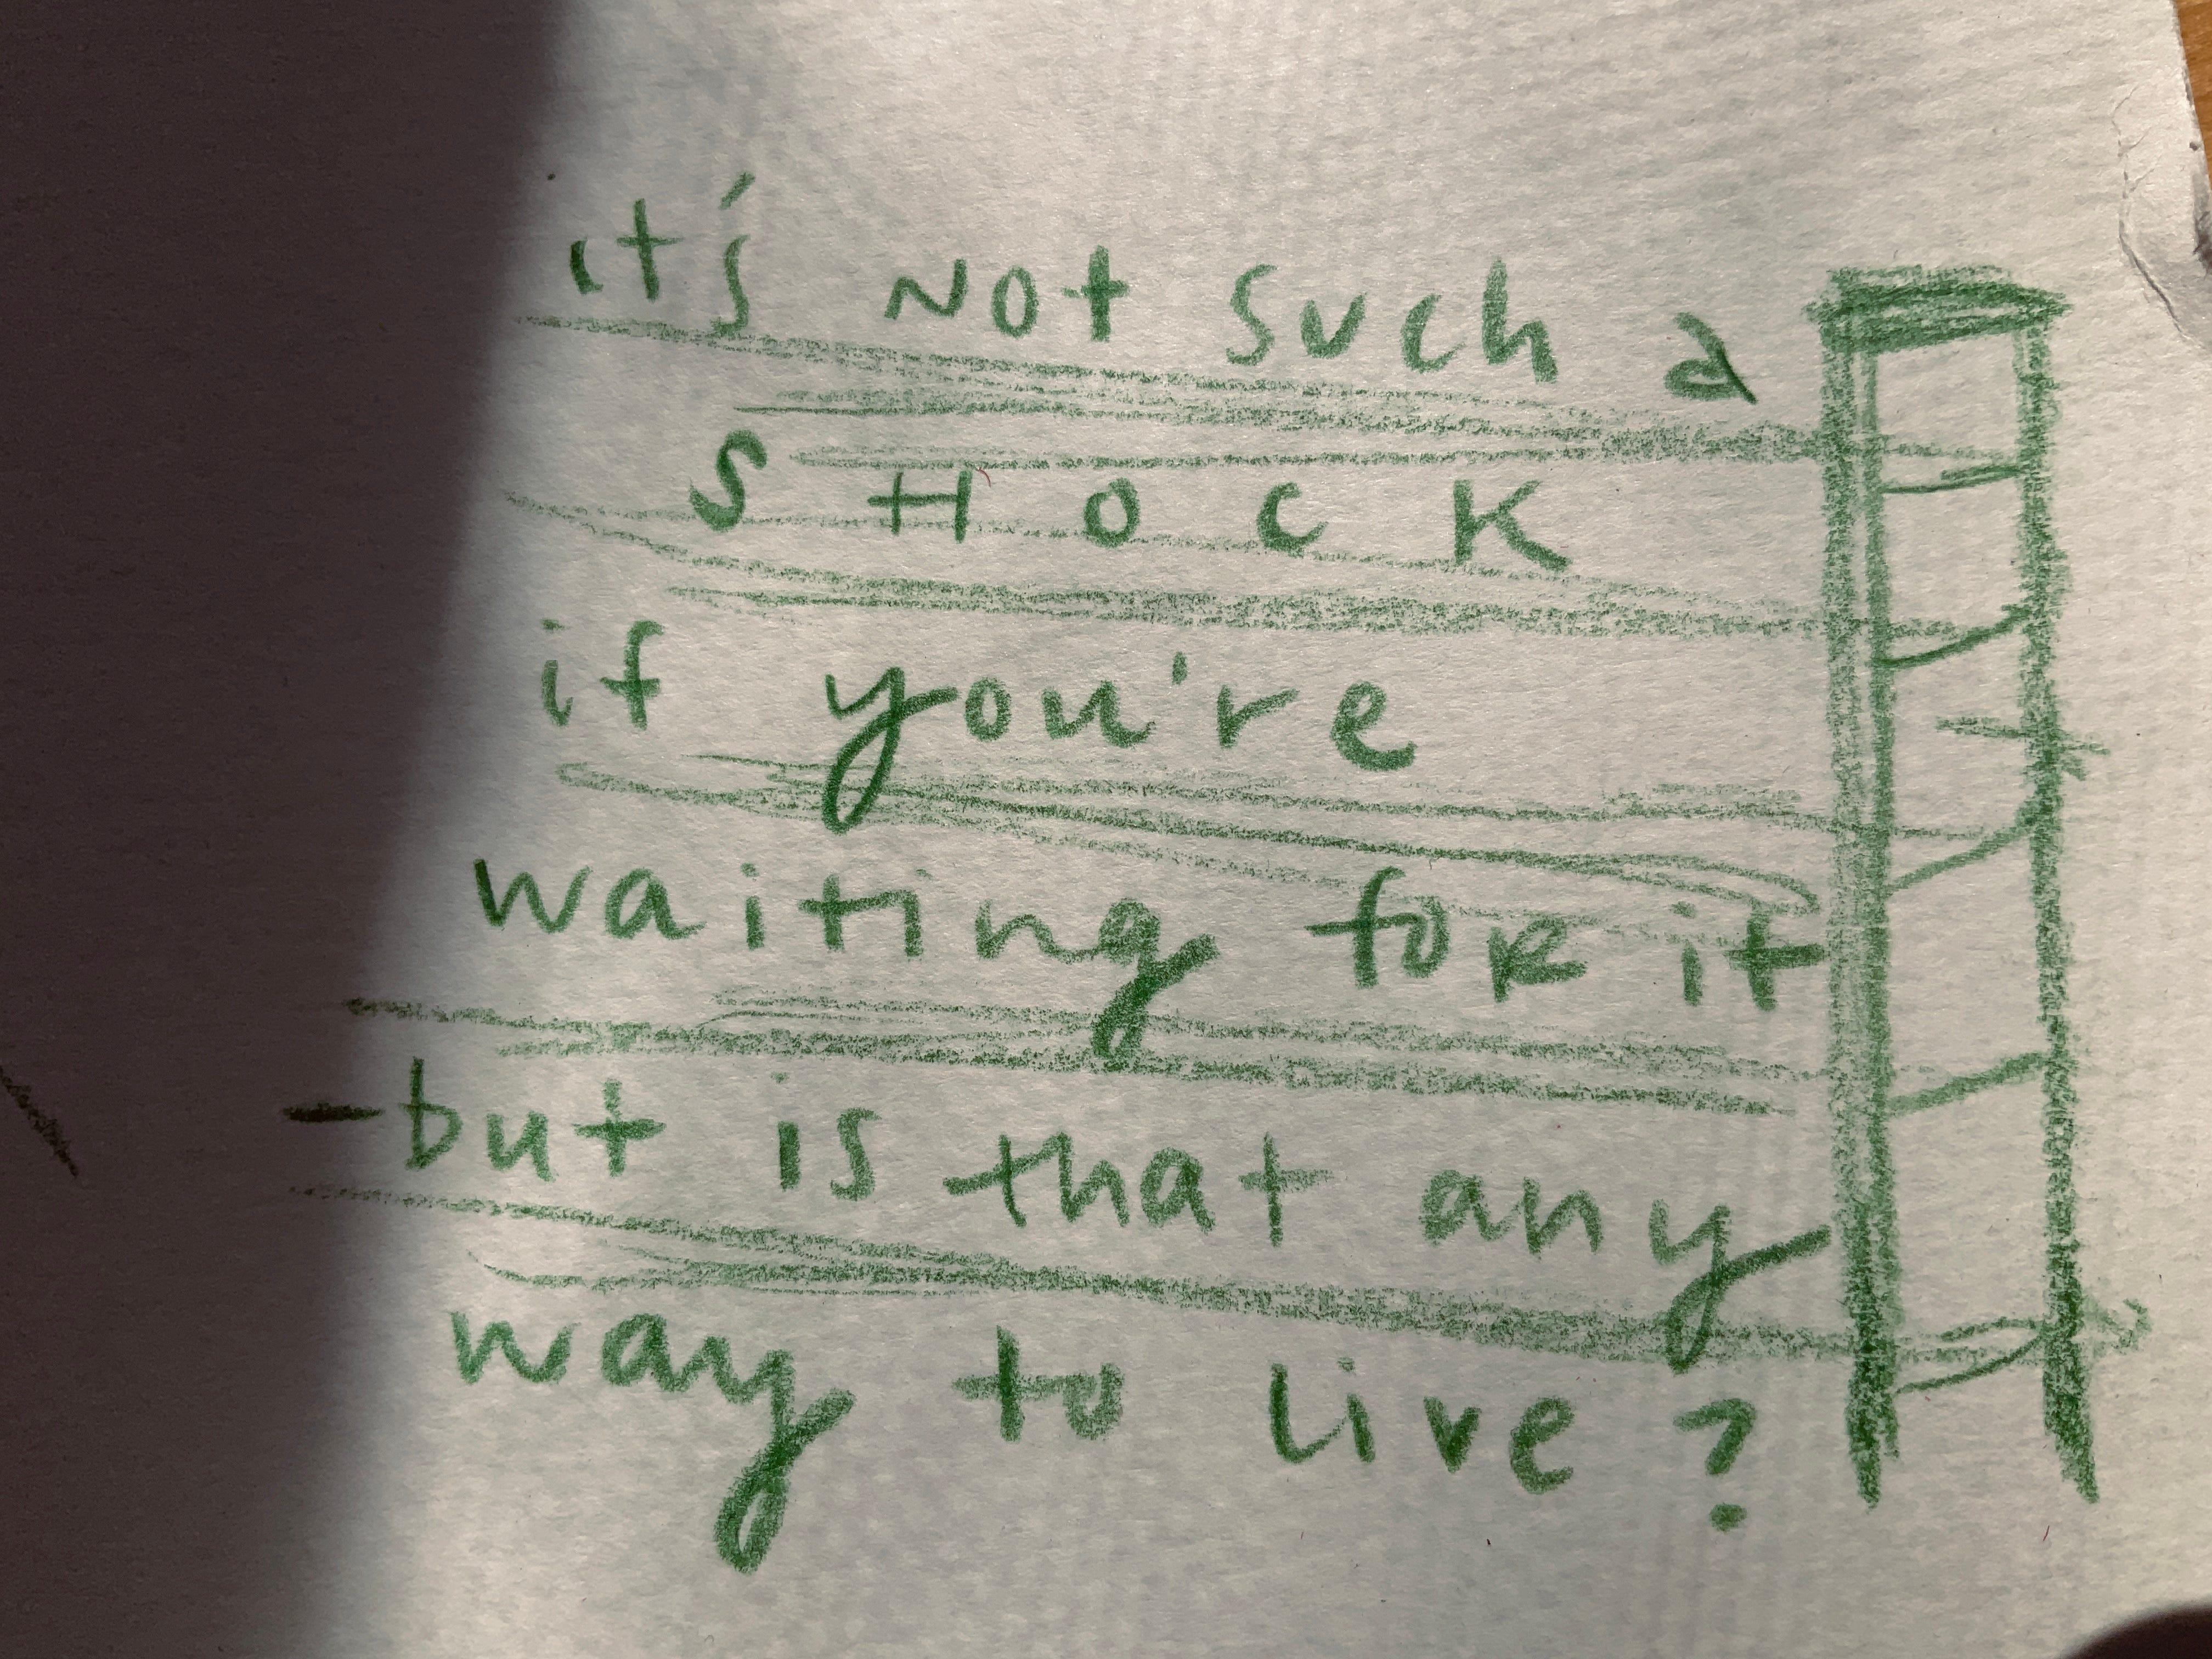 it's Not such a
SHOCK
if you're
waiting foR it
-but is that any
way to live?